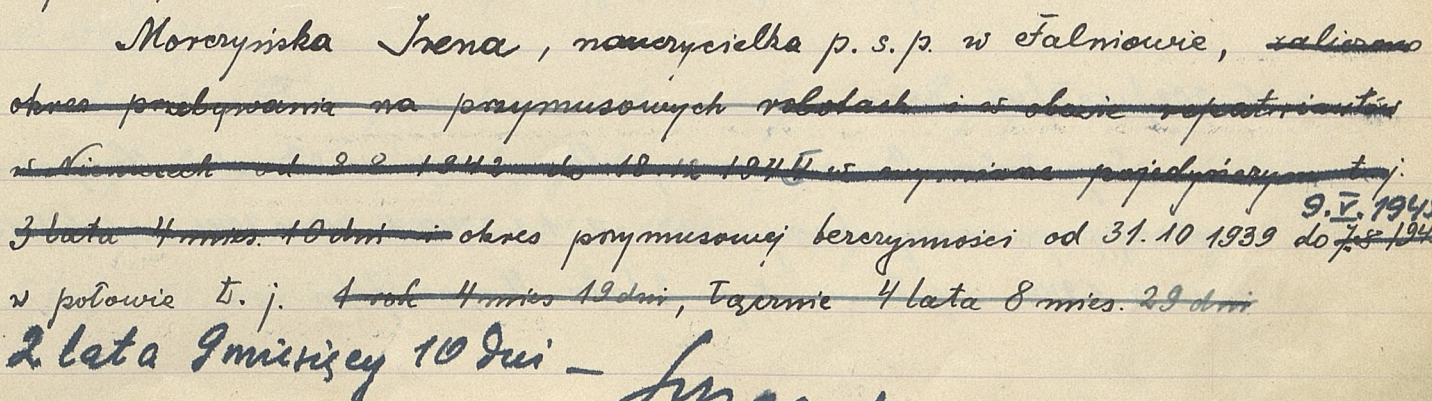 Morczyńska Irena, nauczycielka p. s. p. w Falniowie, zaliczono
okres przebywania na przymusowych robotach i w obozie repatriantów
w Niemczech od 8 8 1942 do 18 12 1945 w wymiarze pojedyńczym t. j.
9. V. 1945
3 lata 4 mies. 10 dni i okres przymusowej bezczynności od 31. 10 1939 do
w połowie t. j. 1 rok 4 mies 19 dni, łącznie 4 lata 8 mies. 29 dni
2 lata 9 miesięcy 10 dni —